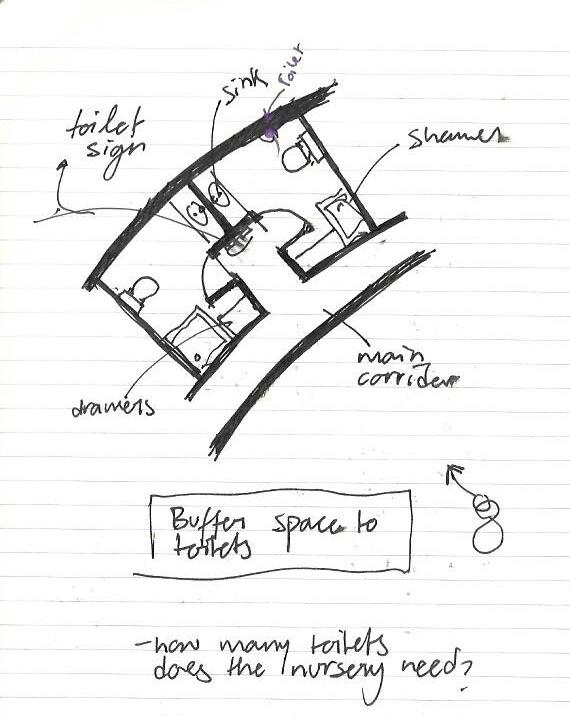 sink
toilet
toilet
sign
shower
main
corridor
drawers
Buffer space to
toilets
-how many toilets
does the nursery need?